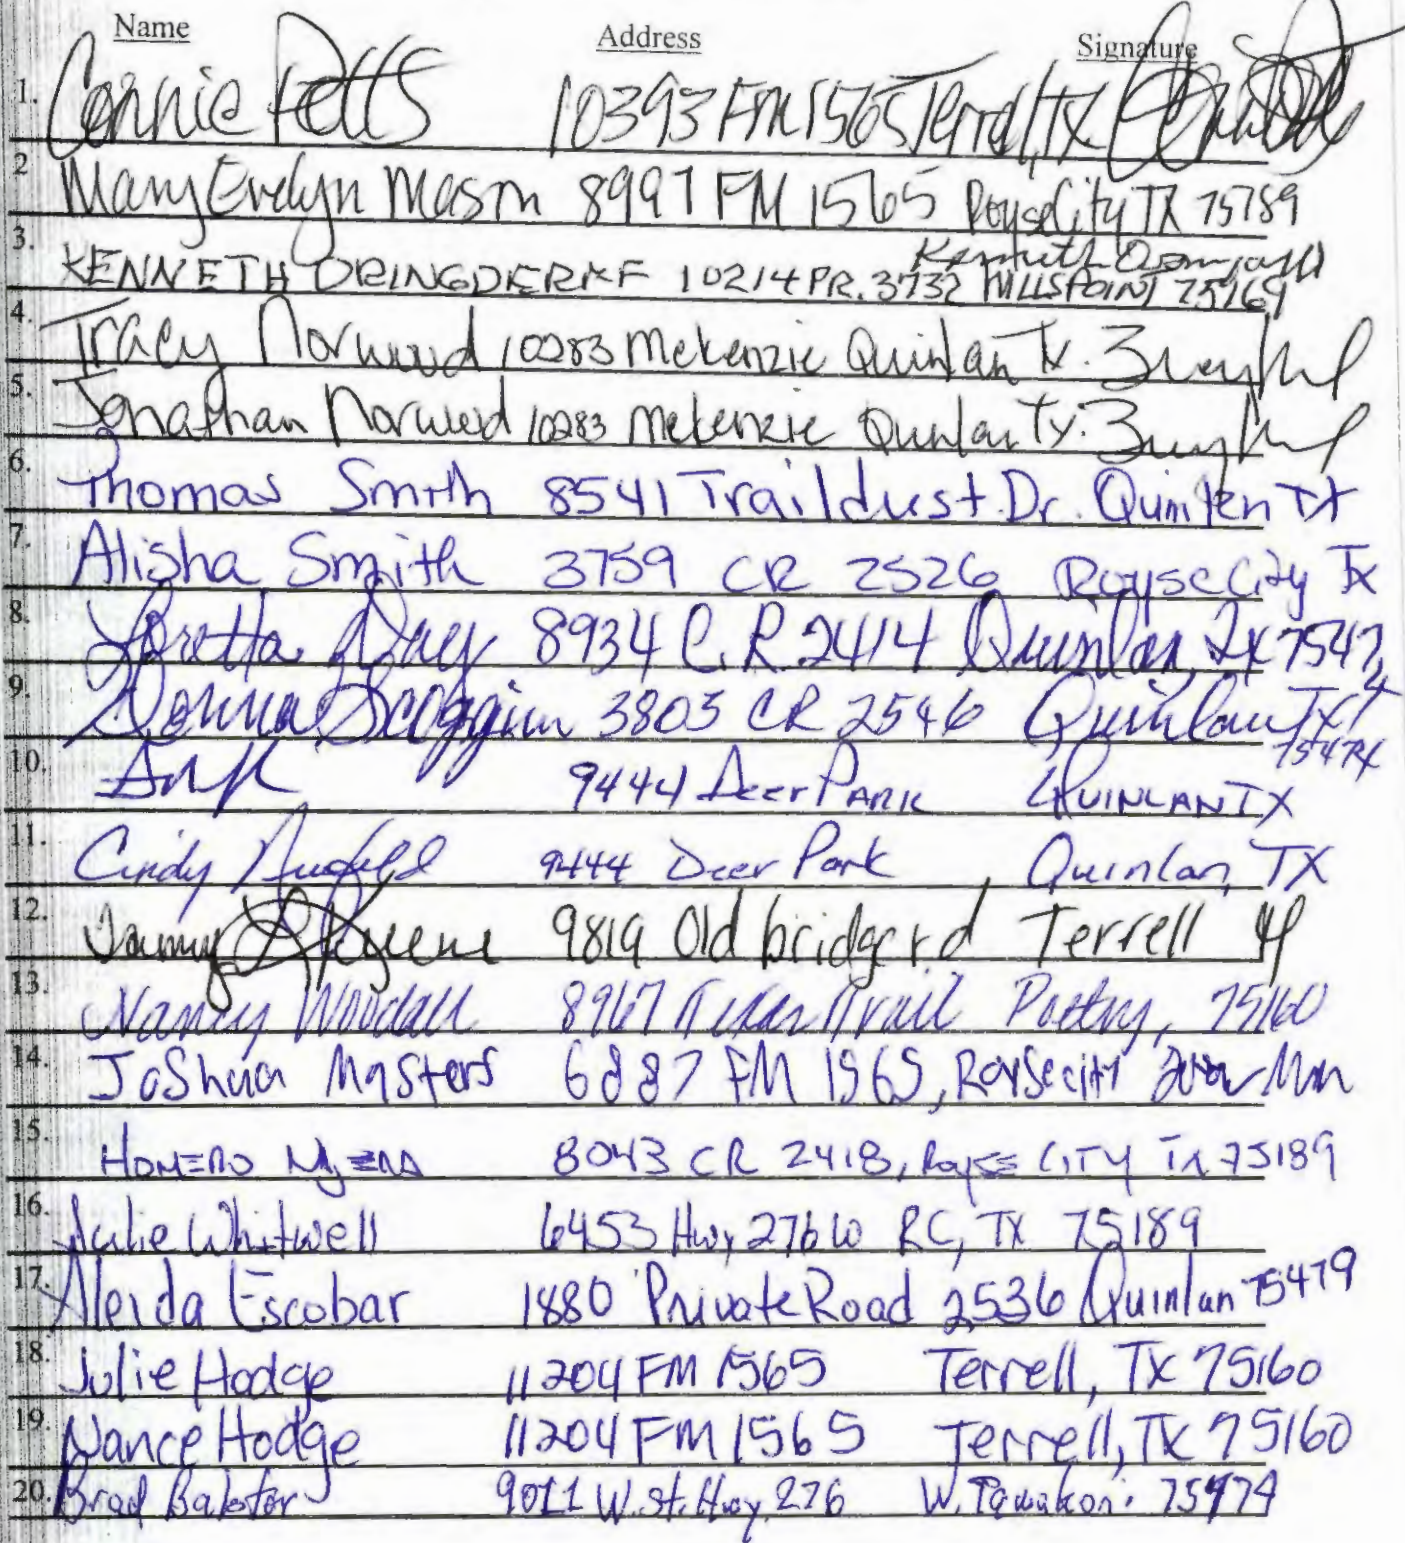 Name Address Signature
1. Connie Petts 10393 FM 1565 Terrell, TX
2. Mary Evelyn Mason 8997 FM 1565 Royse City TX 75189
3. KENNETH 10214 PR. 3732 WILLS POINT 75169
4. Tracy Norwood 10283 Mckenzie Quinlan Tx.
5. Jonathan Norwood 10283 Mckenzie Quinlan Tx.
6. Thomas Smith 8541 Traildust Dr. Quinlen TX
7. Alisha Smith 3759 CR 2526 Royse City Tx
8. Loretta 8934 C.R. 2414 Quinlan, Tx 75474
9. Donna Scoggin 3803 CR 2546 Quinlan TX 75474
10. 9444 Deer PARK QUINLAN TX
11. Cindy 9444 Deer Park, Quinlan, TX
12. 9819 Old bridge rd Terrell
13. Nancy Woodall 8967 Texas Trail Poetry, 75160
14. JoShua Masters 6887 FM 1565, Royse city
15. HOMERO 8043 CR 2418, Royse CITY Tx 75189
16. Julie Whitwell 6453 Hwy 276 W RC, TX 75189
17. Aleida Escobar 1880 Private Road 2536 Quinlan 75479
18. Julie Hodge 11204 FM 1565 Terrell, Tx 75160
19. Vance Hodge 11204 FM 1565 Terrell, TX 75160
20. Brad 9011 W. St. Hwy. 276 W. Tawakoni 75474